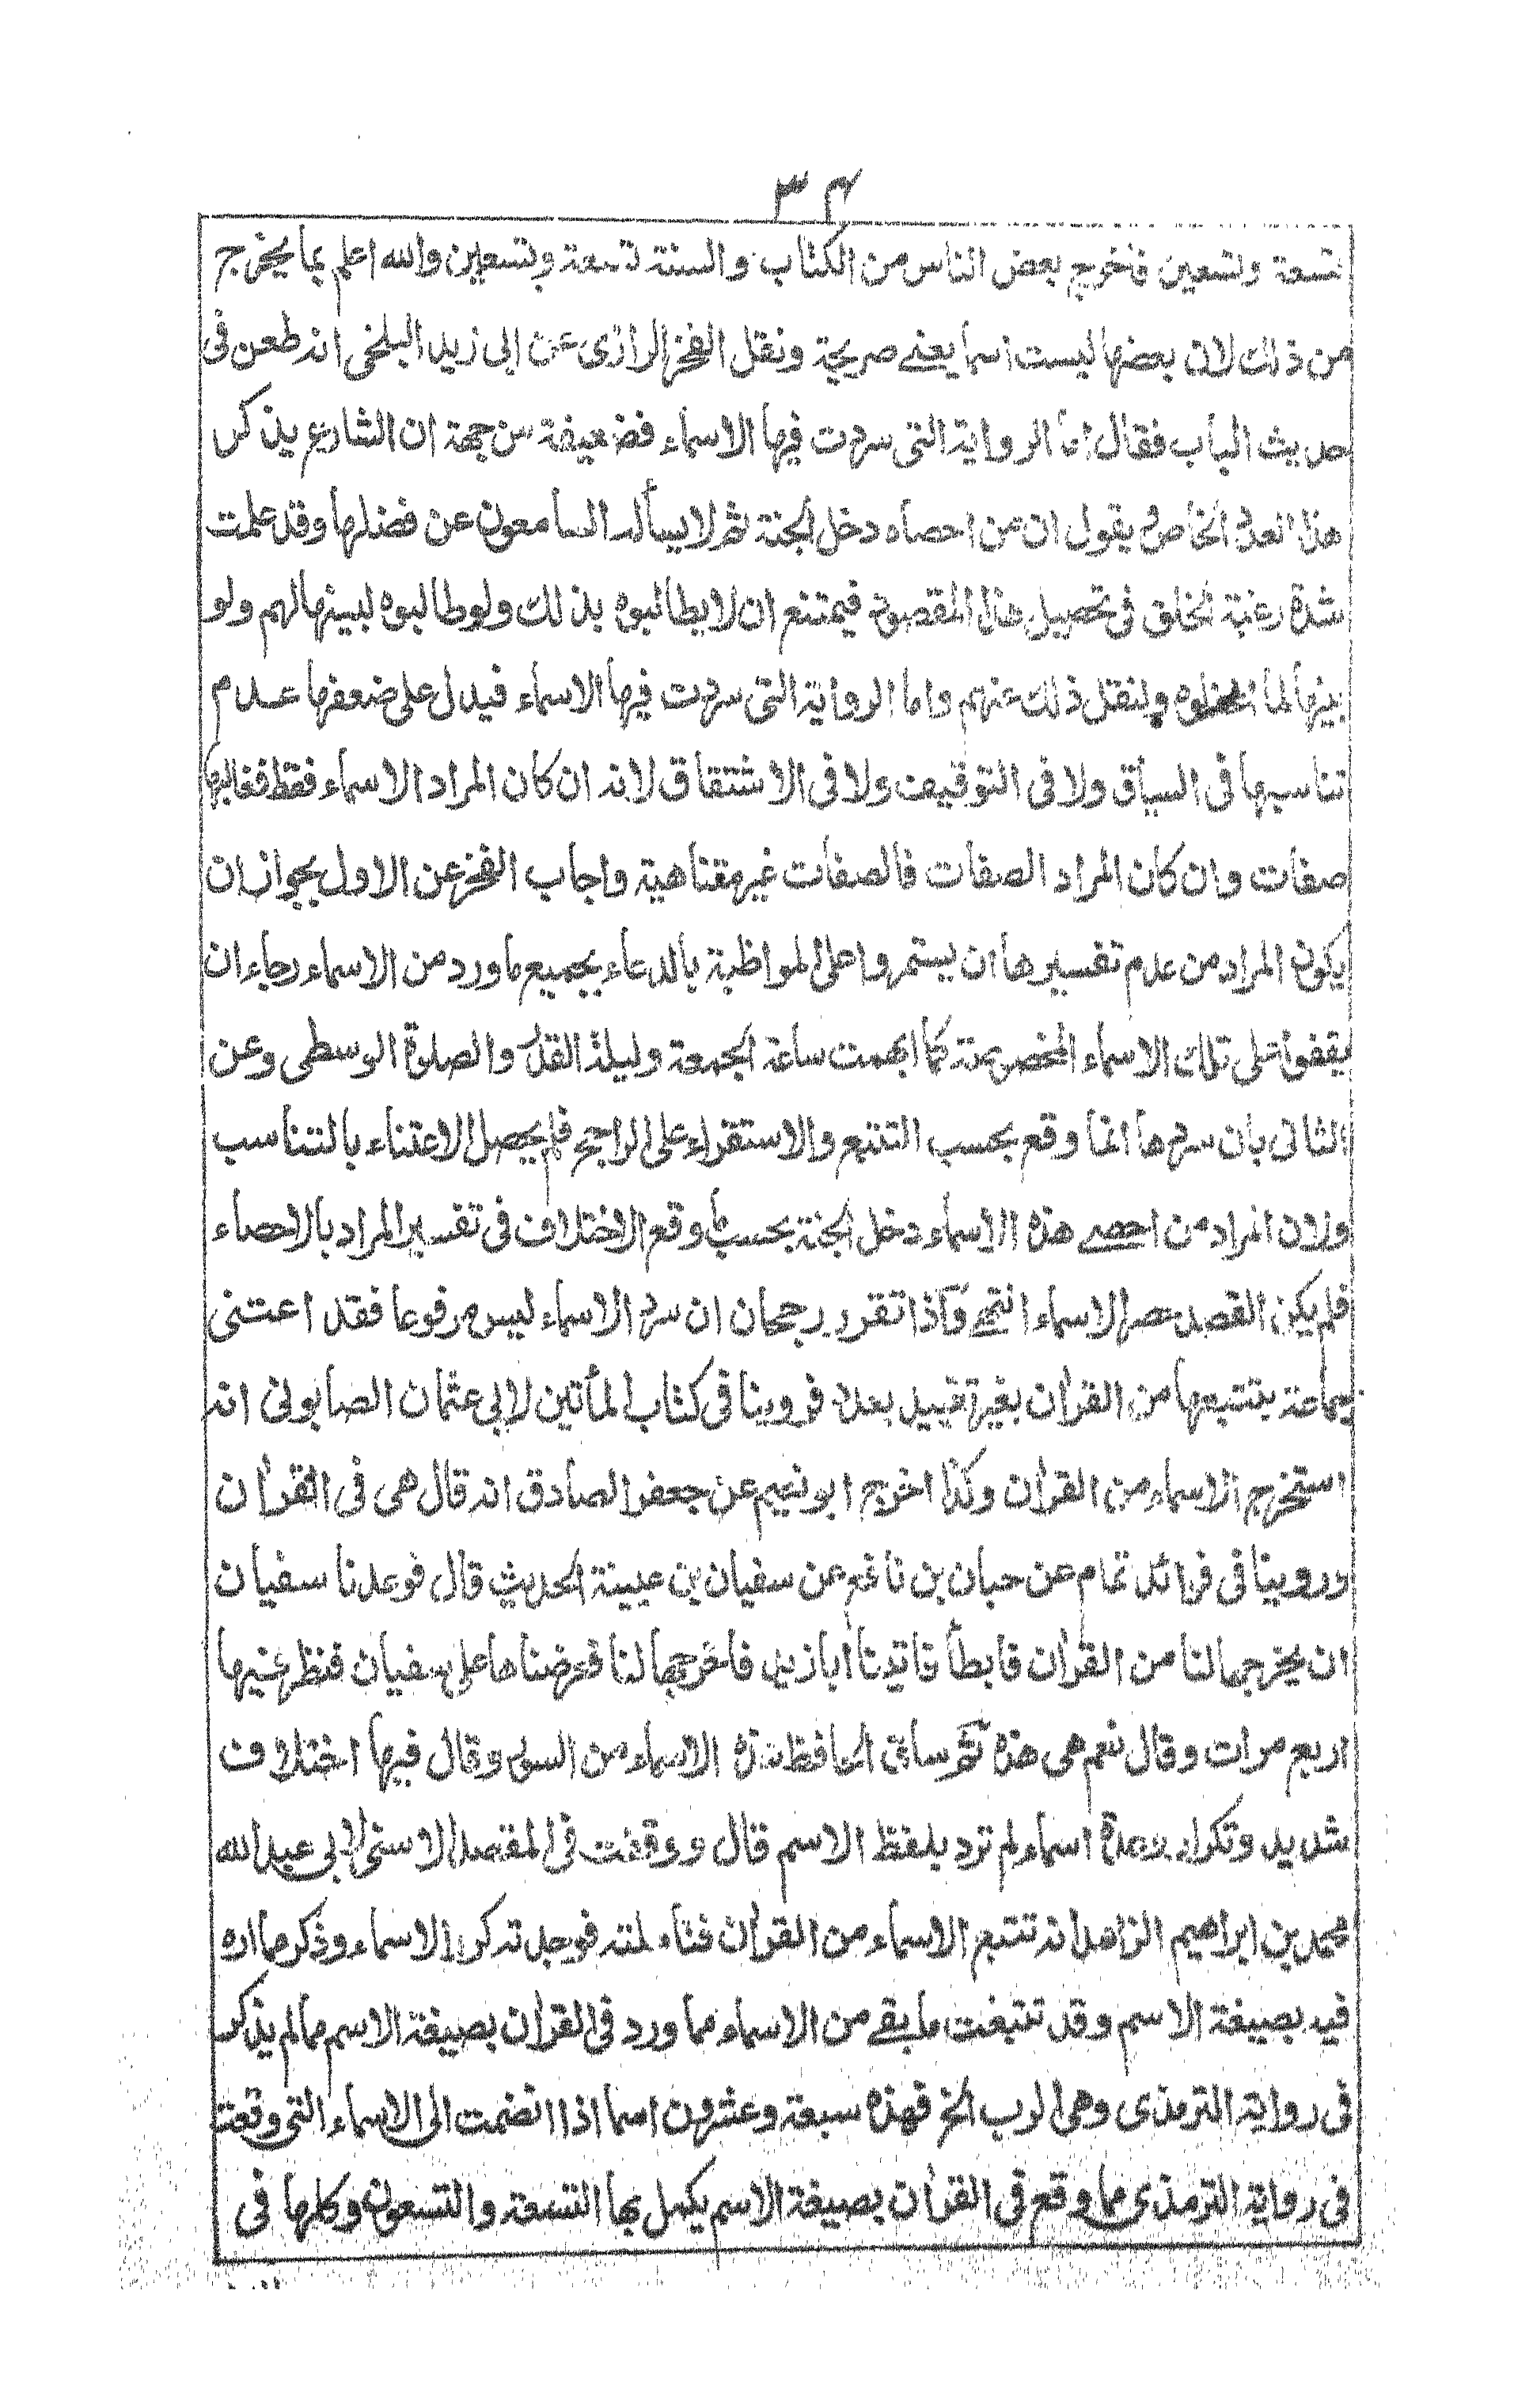 ٣٤
تسعة وتسعين فاخرج بعض الناس من الكتاب والسنة تسعة وتسعين والله اعلم بما يخرج
من ذلك لان بعضها ليست اسما يعنے صريحة ونقل الفخر الرازى عن ابى زيد البلخى انه طعن فى
حديث الباب فقال اما الرواية التى سردت فيها الاسماء فضعيفة من جهة ان الشارع يذكر
هذا العدد الخاص ويقول ان من احصاه دخل الجنة ثم لا يسأله السامعون عن فضلها وقد علمت
شدة رغبة الخلق فى تحصيل هذا المقصود فيمتنع ان لا يطالبوه بذلك ولو طالبوه لبينها لهم ولو
بينها لما اغفلوه ولنقل ذلك عنهم واما الرواية التى سردت فيها الاسماء فيدل على ضعفها عدم
تناسبها فى السياق ولا فى التوقيف ولا فى الاشتقاق لانه ان كان المراد الاسماء فقط فغالبها
صفات وان كان المراد الصفات فالصفات غير متناهية واجاب الفخر عن الاول بجواز ان
يكون المراد من عدم تفسيرها ان يستمروا على المواظبة بالدعاء بجميع ما ورد من الاسماء رجاء ان
يقفوا على تلك الاسماء المخصوصة كما ابهمت ساعة الجمعة وليلة القدر والصلوة الوسطى وعن
الثانى بان سردها انما وقع بحسب التتبع والاستقراء على الراجح فلم يحصل الاعتناء بالتناسب
ولان المراد من احصے هذه الاسماء دخل الجنة بحسب ما وقع الاختلاف فى تفسير المراد بالاحصاء
فلم يكن القصد حصر الاسماء انتهے واذا تقرر رجحان ان سرد الاسماء ليس مرفوعا فقد اعتنى
جماعة بتتبعها من القرأن بغير تقييد بعدد فروينا فى كتاب المأتين لابى عثمان الصابونى انه
استخرج الاسماء من القرأن وكذا اخرج ابو نعيم عن جعفر الصادق انه قال هى فى القرأن
وروينا فى فوائد تمام عن حبان بن نافع عن سفيان بن عيينة الحديث قال فوعدنا سفيان
ان يخرجها لنا من القرأن فابطأ فاتينا أبا زيد فاخرجها لنا فعرضناها على سفيان فنظر فيها
اربع مرات وقال نعم هى هذه ثم ساق الحافظ هذه الاسماء من السور وقال فيها اختلاف
شديد وتكرار وعدة اسماء لم ترد بلفظ الاسم قال ووقفت فى المقصد الاسنى لابى عبد الله
محمد بن ابراهيم الزاهد انه تتبع الاسماء من القرأن فوجدته كرر الاسماء وذكر مما اره
فيه بصيغة الاسم وقد تتبعت ما بقے من الاسماء مما ورد فى القرأن بصيغة الاسم مما لم يذكر
فى رواية الترمذى وهى الرب الخ فهذه سبعة وعشرون اسما اذا انضمت الى الاسماء التى وقعت
فى رواية الترمذى مما وقع فى القرأن بصيغة الاسم يكمل بها التسعة والتسعون وكلها فى